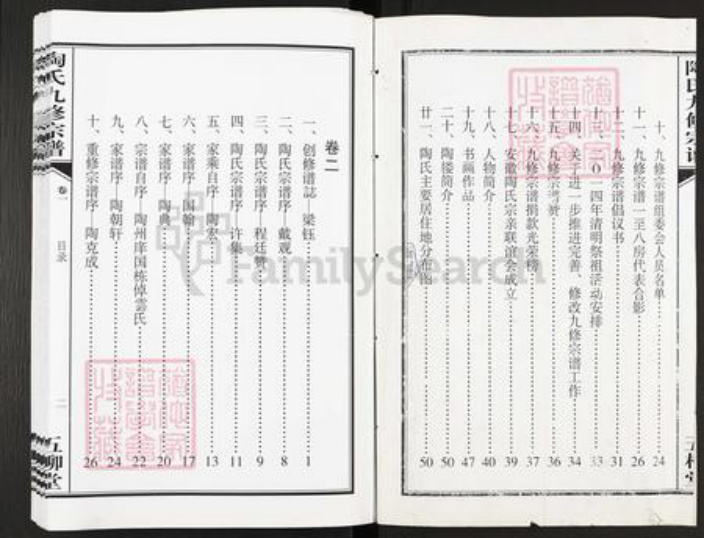 十、九修宗谱组委会人员名单 24
十一、九修宗谱一至八房代表合影 26
十二、九修宗谱倡议书 31
十三、二〇一四年清明祭祖活动安排 33
十四、关于进一步推进完善、修改九修宗谱工作 34
十五、九修宗谱赞 36
十六、九修宗谱捐款光荣榜 37
十七、安徽陶氏宗亲联谊会成立 39
十八、人物简介 40
十九、书画作品 47
二十、陶楼简介 50
廿一、陶氏主要居住地分布图 50
卷二
一、创修谱誌 梁钰 1
二、陶氏宗谱序 戴观 8
三、陶氏宗谱序 程廷赞 9
四、陶氏宗谱序 许集 11
五、家乘自序 陶宏 13
六、家谱序 国翰 17
七、家谱序 陶典 20
八、宗谱自序 陶州庠国栋倬雲氏 22
九、家谱序 陶朝轩 24
十、重修宗谱序 陶克成 26
陶氏九修宗谱
卷一
目录
二
五柳堂
FamilySearch